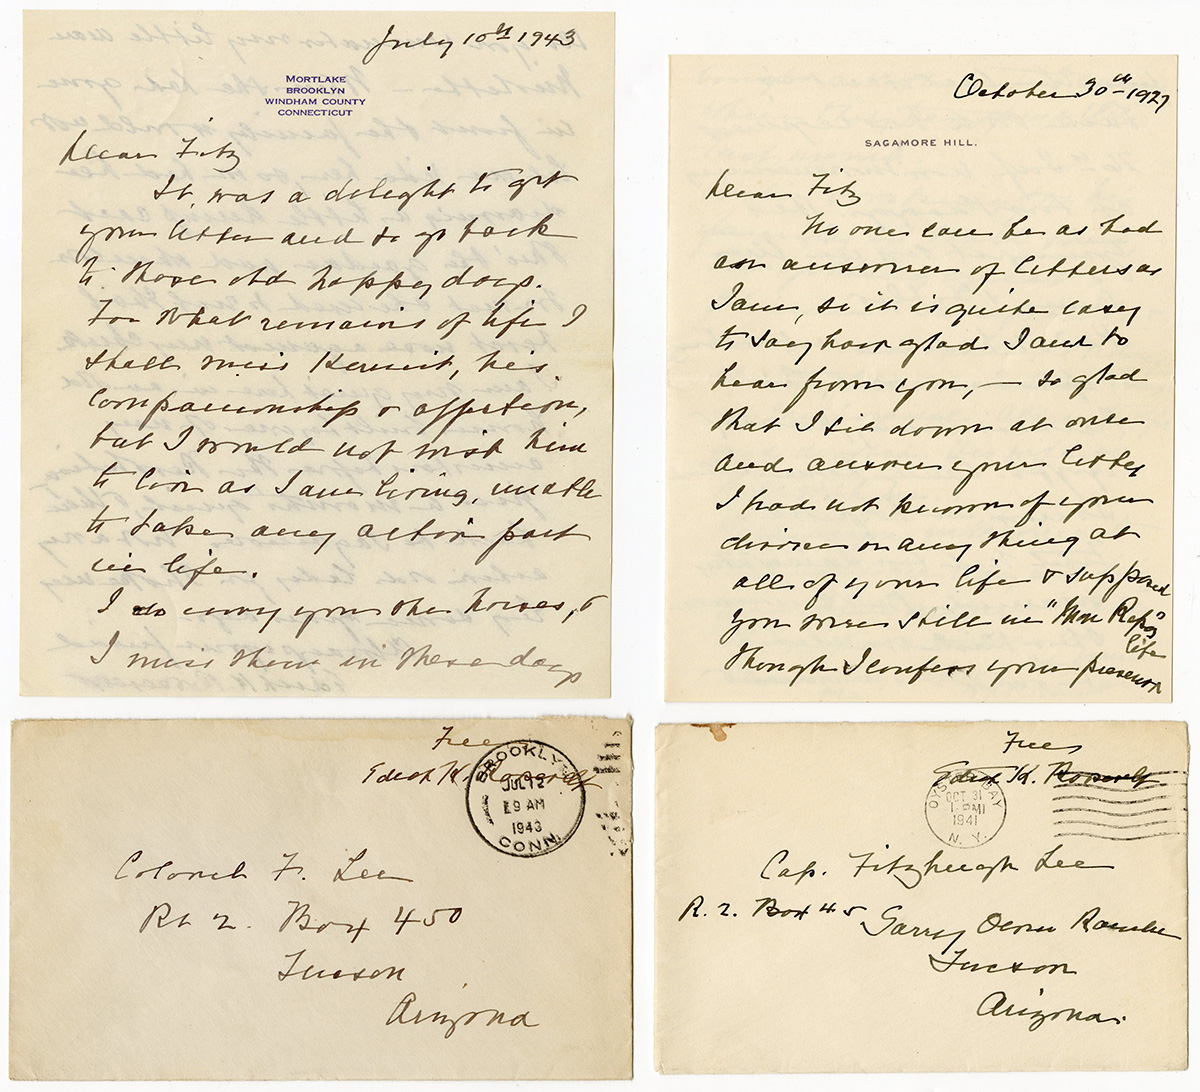 July 10th 1943
MORTLAKE
BROOKLYN
WINDHAM COUNTY
CONNECTICUT
Dear Fitz
It was a delight to get
your letter and to go back
to those old happy days.
For what remains of life I
shall miss Kermit, his
companionship & affection,
but I would not wish him
to live as I am living, unable
to take any active part
in life.
I do envy you the horses, &
I miss them in these days
October 30th 1927
SAGAMORE HILL.
Dear Fitz
No one can be as bad
an answerer of letters as
I am, so it is quite easy
to say how glad I am to
hear from you, — so glad
that I sit down at once
and answer your letter
I had not known of your
divorce or anything at
all of your life & supposed
you were still in "Mon Repos"
life
though I confess your presence
Free
Edith K. Roosevelt
BROOKLYN
JUL 12
9 AM
1943
CONN.
Colonel F. Lee
Rt 2. Box 450
Tucson
Arizona
Free
Edith K. Roosevelt
OYSTER BAY
OCT 31
1941
N. Y.
Cap. Fitzhugh Lee
R. 2. Box 45
Garry Owen Ranche
Tucson
Arizona.